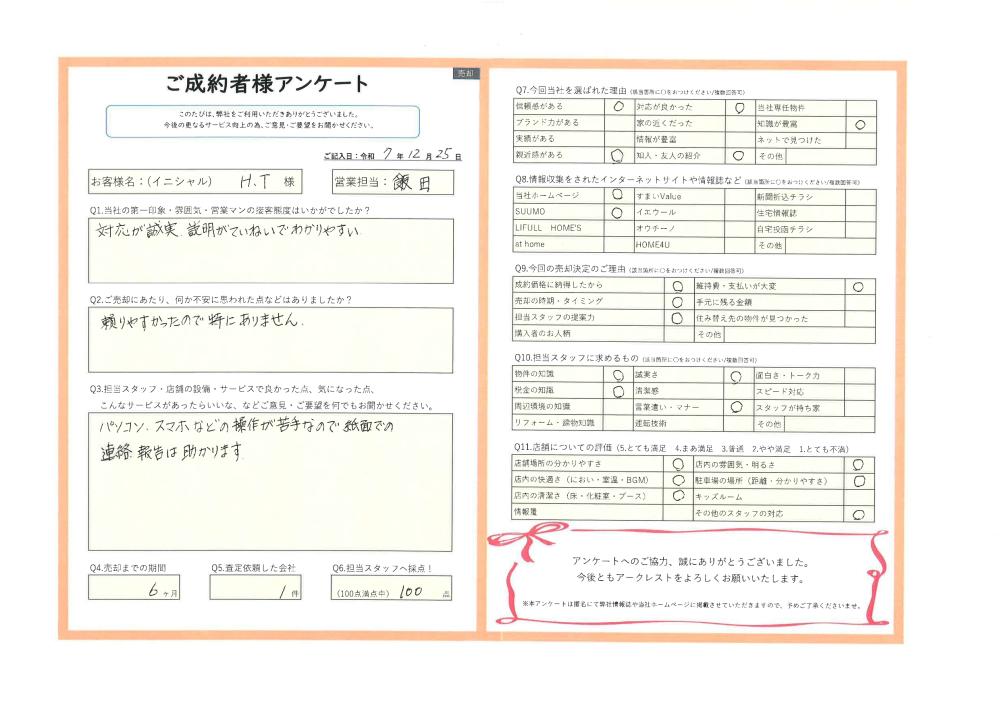 売却
ご成約者様アンケート
このたびは、弊社をご利用いただきありがとうございました。
今後の更なるサービス向上の為、ご意見・ご要望をお聞かせください。
ご記入日：令和 7 年 12 月 25 日
お客様名：(イニシャル) H.T 様
営業担当：飯田
Q1.当社の第一印象・雰囲気・営業マンの接客態度はいかがでしたか？
対応が誠実、説明がていねいでわかりやすい
Q2.ご売却にあたり、何か不安に思われた点などはありましたか？
頼りやすかったので特にありません。
Q3.担当スタッフ・店舗の設備・サービスで良かった点、気になった点、
こんなサービスがあったらいいな、などご意見・ご要望を何でもお聞かせください。
パソコン、スマホなどの操作が苦手なので紙面での
連絡、報告は助かります
Q4.売却までの期間
6 ヶ月
Q5.査定依頼した会社
1 件
Q6.担当スタッフへ採点！
(100点満点中) 100 点
Q7.今回当社を選ばれた理由 (該当箇所に〇をおつけください/複数回答可)
信頼感がある ○ 対応が良かった ○ 当社専任物件
ブランド力がある 家の近くだった 知識が豊富 ○
実績がある 情報が豊富 ネットで見つけた
親近感がある ○ 知人・友人の紹介 ○ その他
Q8.情報収集をされたインターネットサイトや情報誌など (該当箇所に〇をおつけください/複数回答可)
当社ホームページ ○ すまいValue 新聞折込チラシ
SUUMO ○ イエウール 住宅情報誌
LIFULL HOME'S オウチーノ 自宅投函チラシ
at home HOME4U その他
Q9.今回の売却決定のご理由 (該当箇所に〇をおつけください/複数回答可)
成約価格に納得したから ○ 維持費・支払いが大変 ○
売却の時期・タイミング ○ 手元に残る金額
担当スタッフの提案力 ○ 住み替え先の物件が見つかった
購入者のお人柄 その他
Q10.担当スタッフに求めるもの (該当箇所に〇をおつけください/複数回答可)
物件の知識 ○ 誠実さ ○ 面白さ・トーク力
税金の知識 ○ 清潔感 スピード対応
周辺環境の知識 言葉遣い・マナー ○ スタッフが持ち家
リフォーム・建物知識 運転技術 その他
Q11.店舗についての評価 (5.とても満足 4.まあ満足 3.普通 2.やや満足 1.とても不満)
店舗場所の分かりやすさ ○ 店内の雰囲気・明るさ ○
店内の快適さ (におい・室温・BGM) ○ 駐車場の場所 (距離・分かりやすさ) ○
店内の清潔さ (床・化粧室・ブース) ○ キッズルーム
情報量 その他のスタッフの対応 ○
アンケートへのご協力、誠にありがとうございました。
今後ともアークレストをよろしくお願いいたします。
※本アンケートは匿名にて弊社情報誌や当社ホームページに掲載させていただきますので、予めご了承くださいませ。